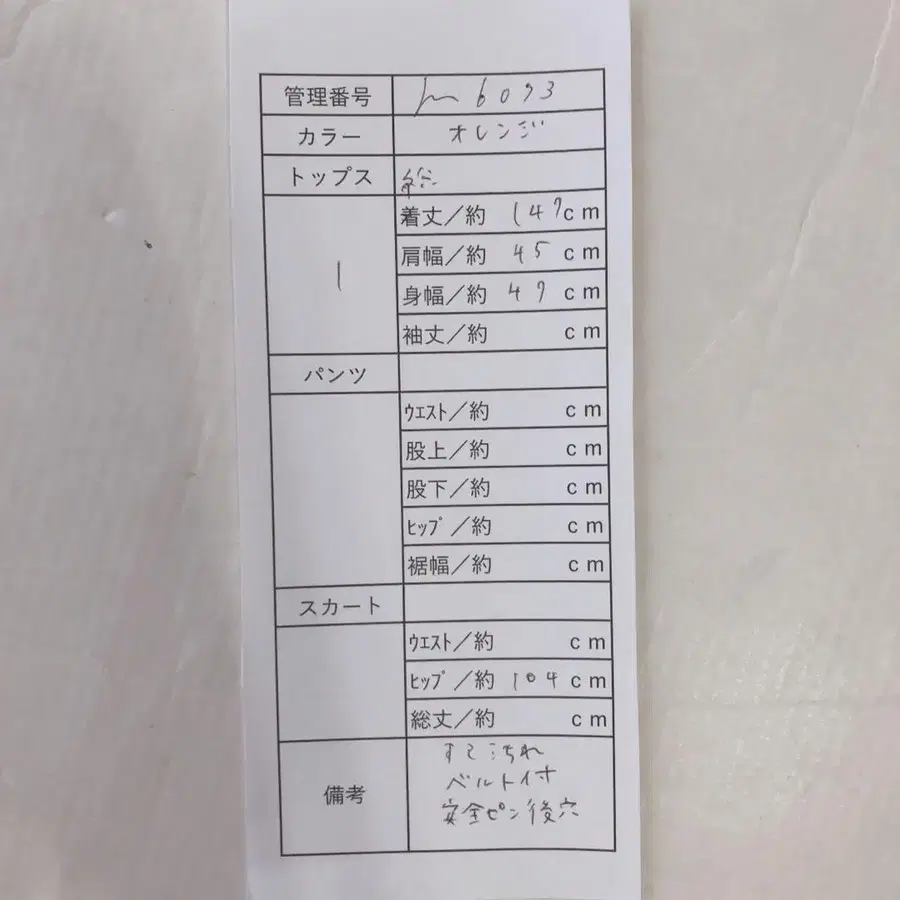 管理番号 6093
カラー オレンジ
トップス
1
着丈／約 147cm
肩幅／約 45cm
身幅／約 47cm
袖丈／約 cm
パンツ
ｳｴｽﾄ／約 cm
股上／約 cm
股下／約 cm
ﾋｯﾌﾟ／約 cm
裾幅／約 cm
スカート
ｳｴｽﾄ／約 cm
ﾋｯﾌﾟ／約 104cm
総丈／約 cm
備考
汚れ
ベルト付
安全ピン後穴